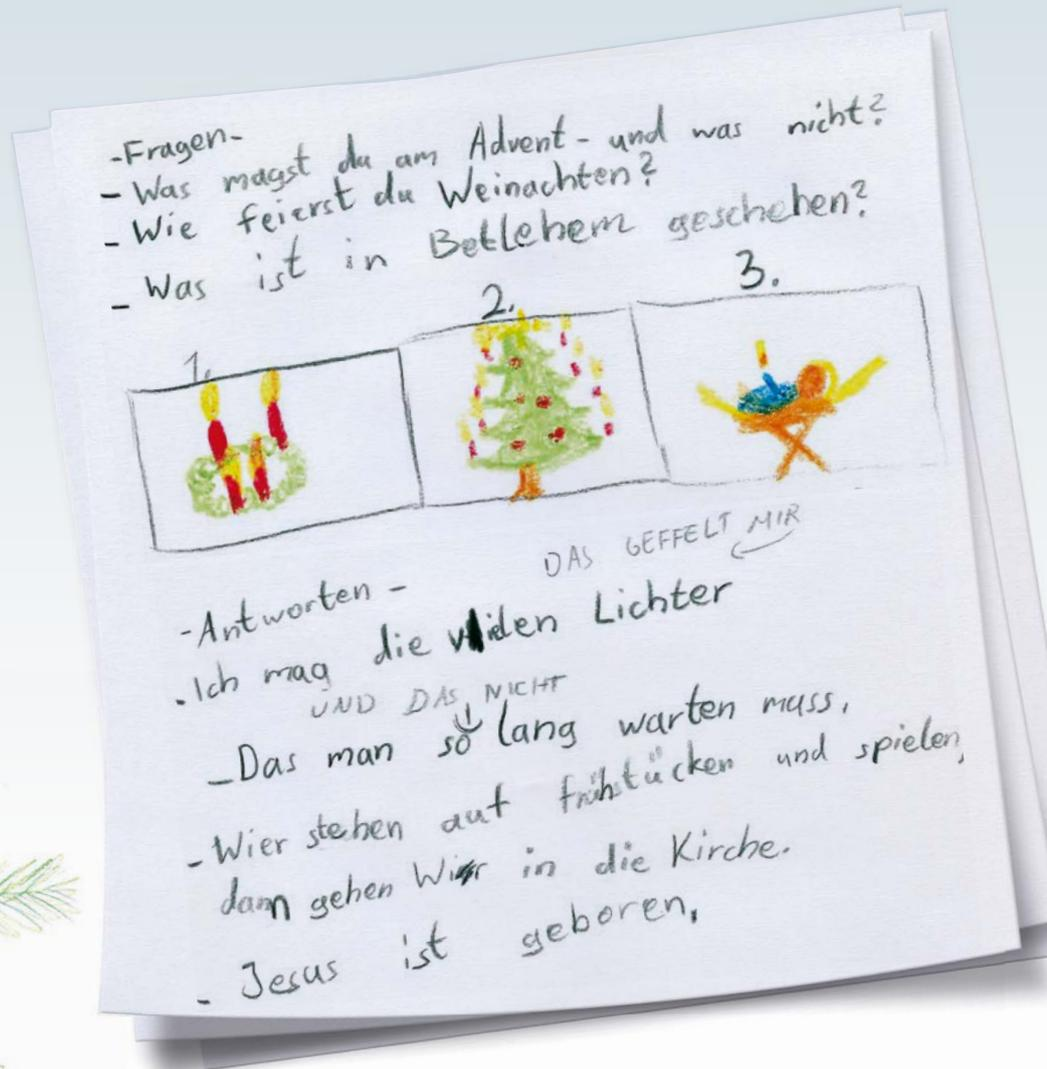 -Fragen-
- Was magst du am Advent - und was nicht?
- Wie feierst du Weinachten?
- Was ist in Betlehem geschehen?
1. 2. 3.
DAS GEFFELT MIR
-Antworten-
. Ich mag die vielen Lichter
UND DAS NICHT
- Das man so lang warten muss.
- Wier stehen auf frühstücken und spielen,
dann gehen Wir in die Kirche.
- Jesus ist geboren.